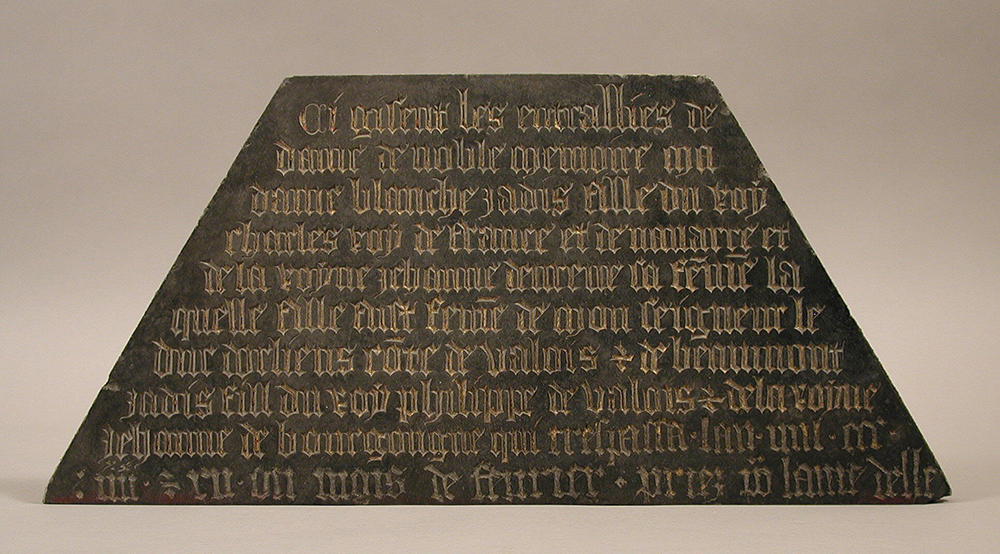 Ci gisent les entrallies de
dame de noble memoire ma
dame blanche jadis fille du roy
charles roy de france et de navarre et
de la royne jehanne devreue sa fēme la
quelle fille fust fēme de mon seigneur le
duc dorliens cōte de valois ⁊ de beaumont
jadis fill du roy phelippe de valois ⁊ de la royne
jehanne de bourgougne qui trespassa · lan · mil · ccc ·
: iiii · ⁊ xii · ou mois de fevrier · priez pō lame delle